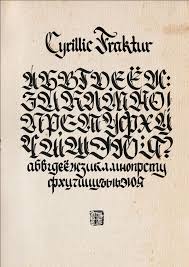 Cyrillic Fraktur
АБВГДЕЁЖ:
ЗИКЛМНО!
ПРСТУФХЦ
абвгдеёжзиклмнопрсту
фхцчшщъыьэюя